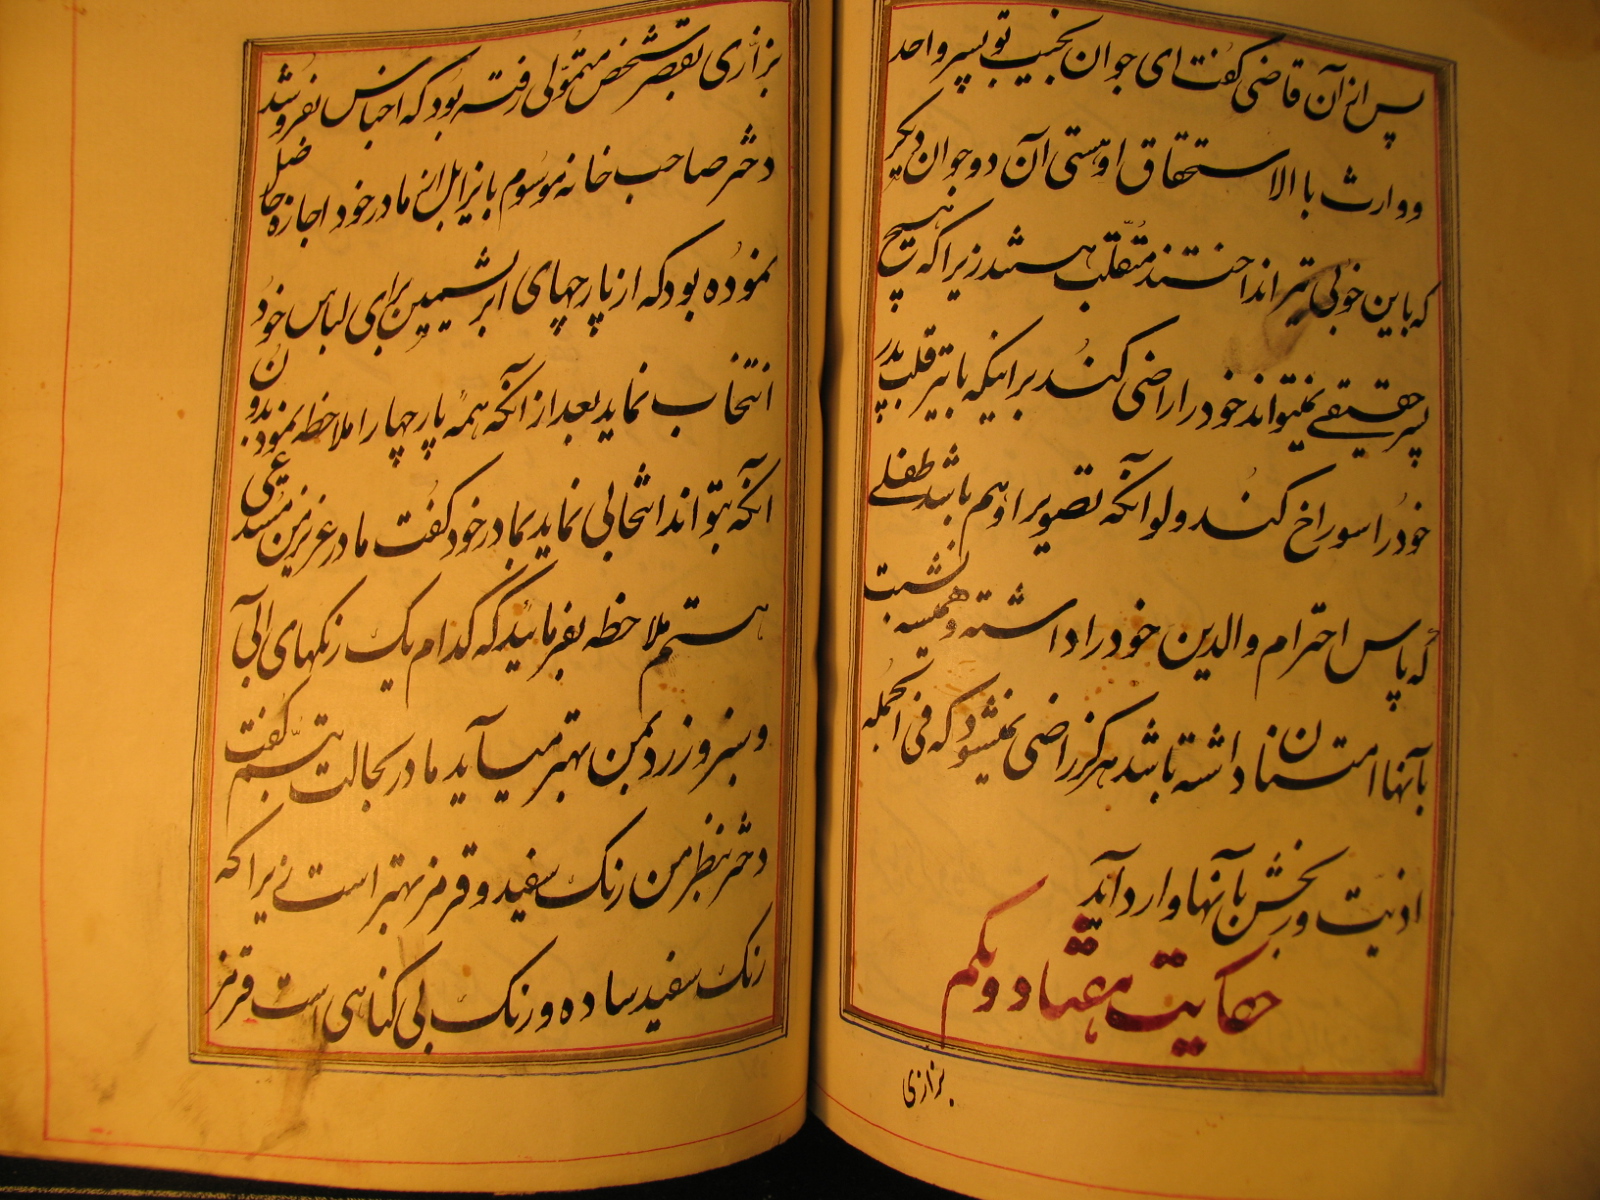 پس از آن قاضی گفت ای جوان نجیب تو پسر واحد
و وارث با الاستحقاق او هستی آن دو جوان دیگر
که باین خوبی تیر انداختند متقلب هستند زیرا که هیچ
پسر حقیقے نمیتواند خود را راضی کند براینکه با تیر قلب پدر
خود را سوراخ کند ولو آنکه تصویر او هم باشد طفلے
که پاس احترام والدین خود را داشته و همیشه نسبت
بآنها امتنان داشته باشد هرگز راضی نمیشود که فی الجمله
اذیت و رنجش بآنها وارد آید
حکایت هفتاد و یکم
بزازی
بزازی بقصر شخص متمولی رفته بود که اجناس بفروشد
دختر صاحب خانه موسوم بایزابل از مادر خود اجازه حاصل
نموده بود که از پارچهای ابریشمین برای لباس خود
انتخاب نماید بعد از آنکه همه پارچها را ملاحظه نمود بدون
آنکه بتواند انتخابی نماید بمادر خود گفت مادر عزیز من مستدعی
هستم ملاحظه بفرمائید که کدام یک رنگهای آبی
و سبز و زرد بمن بهتر میآید مادر بحالت تبسم گفت
دختر بنظر من رنگ سفید و قرمز بهتر است زیرا که
رنگ سفید ساده و رنگ بی گناهی است قرمز